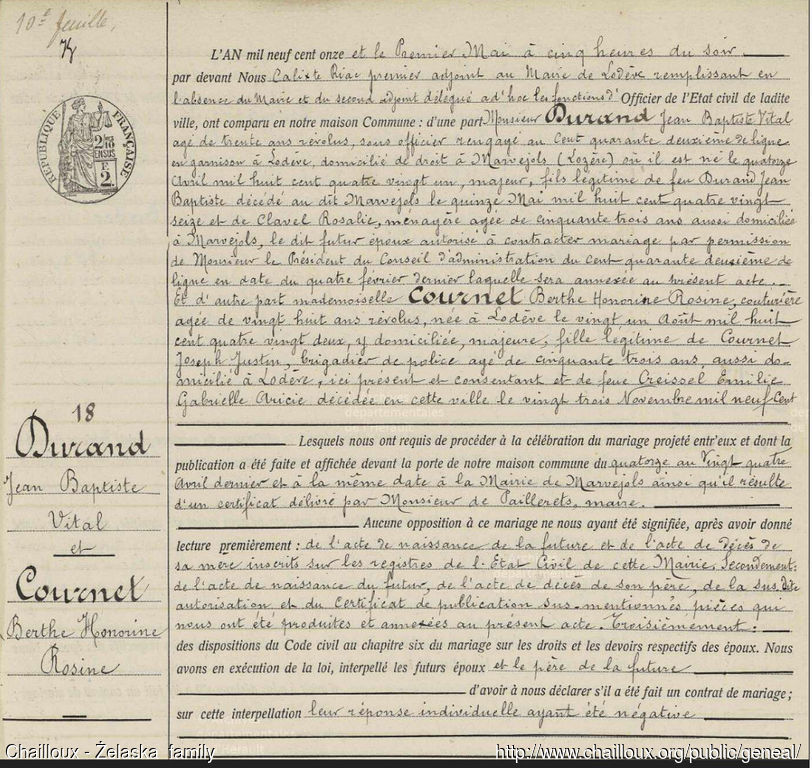 10e feuille.
RÉPUBLIQUE FRANÇAISE
F
2.
L'AN mil neuf cent onze et le Premier Mai à cinq heures du soir
par devant Nous Calixte Riac premier adjoint au Maire de Lodève remplissant en
l'absence du Maire et du second adjoint délégué ad'hoc les fonctions d' Officier de l'Etat civil de ladite
ville, ont comparu en notre maison Commune : d'une part Monsieur Durand Jean Baptiste Vital
agé de trente ans révolus, sous officier rengagé au Cent quarante deuxième de ligne
en garnison à Lodève, domicilié de droit à Marvejols (Lozère) où il est né le quatorze
Avril mil huit cent quatre vingt un, majeur, fils légitime de feu Durand Jean
Baptiste décédé au dit Marvejols le quinze Mai mil huit cent quatre vingt
seize et de Clavel Rosalie, ménagère agée de cinquante trois ans aussi domiciliée
à Marvejols, le dit futur époux autorisé à contracter mariage par permission
de Monsieur le Président du Conseil d'administration du cent quarante deuxième de
ligne en date du quatre février dernier laquelle sera annexée au présent acte.
Et d'autre part mademoiselle Cournet Berthe Honorine Rosine, couturière
agée de vingt huit ans révolus, née à Lodève le vingt un Août mil huit
cent quatre vingt deux, y domiciliée, majeure, fille légitime de Cournet
Joseph Justin, brigadier de police agé de cinquante trois ans, aussi do-
micilié à Lodève, ici présent et consentant et de feue Creissel Emilie
Gabrielle Aricie décédée en cette ville le vingt trois Novembre mil neuf Cent
Lesquels nous ont requis de procéder à la célébration du mariage projeté entr'eux et dont la
publication a été faite et affichée devant la porte de notre maison commune du quatorze au Vingt quatre
Avril dernier et à la même date à la Mairie de Marvejols ainsi qu'il résulte
d'un certificat délivré par Monsieur de Pailleretz, maire.
Aucune opposition à ce mariage ne nous ayant été signifiée, après avoir donné
lecture premièrement : de l'acte de naissance de la future et de l'acte de décès de
sa mère inscrits sur les registres de l'Etat Civil de cette Mairie. Secondement:
de l'acte de naissance du futur, de l'acte de décès de son père, de la sus dite
autorisation et du Certificat de publication sus-mentionnés pièces qui
nous ont été produites et annexées au présent acte. Troisièmement :
des dispositions du Code civil au chapitre six du mariage sur les droits et les devoirs respectifs des époux. Nous
avons en exécution de la loi, interpellé les futurs époux et le père de la future
d'avoir à nous déclarer s'il a été fait un contrat de mariage ;
sur cette interpellation leur réponse individuelle ayant été négative
18
Durand
Jean Baptiste
Vital
et
Cournet
Berthe Honorine
Rosine
départementales
Hérault
Chailloux - Želaska family
http://www.chailloux.org/public/geneal/